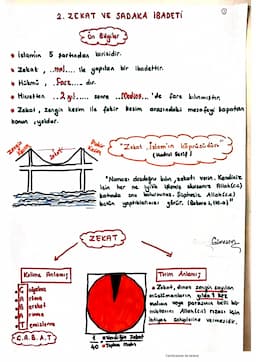 2. ZEKAT VE SADAKA İBADETİ
Ön Bilgiler
* İslam'ın 5 şartından birisidir.
* Zekat, ..mal.... ile yapılan bir ibadettir.
* Hükmü, ..Farz... dır.
* Hicretten ..2 yıl.... sonra ..Medine...'de farz kılınmıştır.
* Zekat, zengin kesim ile fakir kesim arasındaki mesafeyi kapatan
Zengin Kesim
Fakir Kesim
"Zekat, İslam'ın köprüsüdür"
(Hadisi Şerif)
"Namazı dosdoğru kılın, zekatı verin. Kendiniz
için her ne iyilik işlemiş olursanız Allah(c.c)
katında onu bulursunuz. Şüphesiz Allah(c.c)
bütün yaptıklarınızı görür. (Bakara s, 110.a)"
ZEKAT
Kelime Anlamı
Terim Anlamı
Artma
Bereket
Arıtma
Temizleme
C.A.B.A.T
* Zekat, dinen zengin sayılan
müslümanların yılda 1 kez
malının veya parasının belli bir
miktarını Allah(c.c) rızası için
ihtiyaç sahiplerine vermesidir.
1
40
Verdiğin Zekat
Toplam Malın